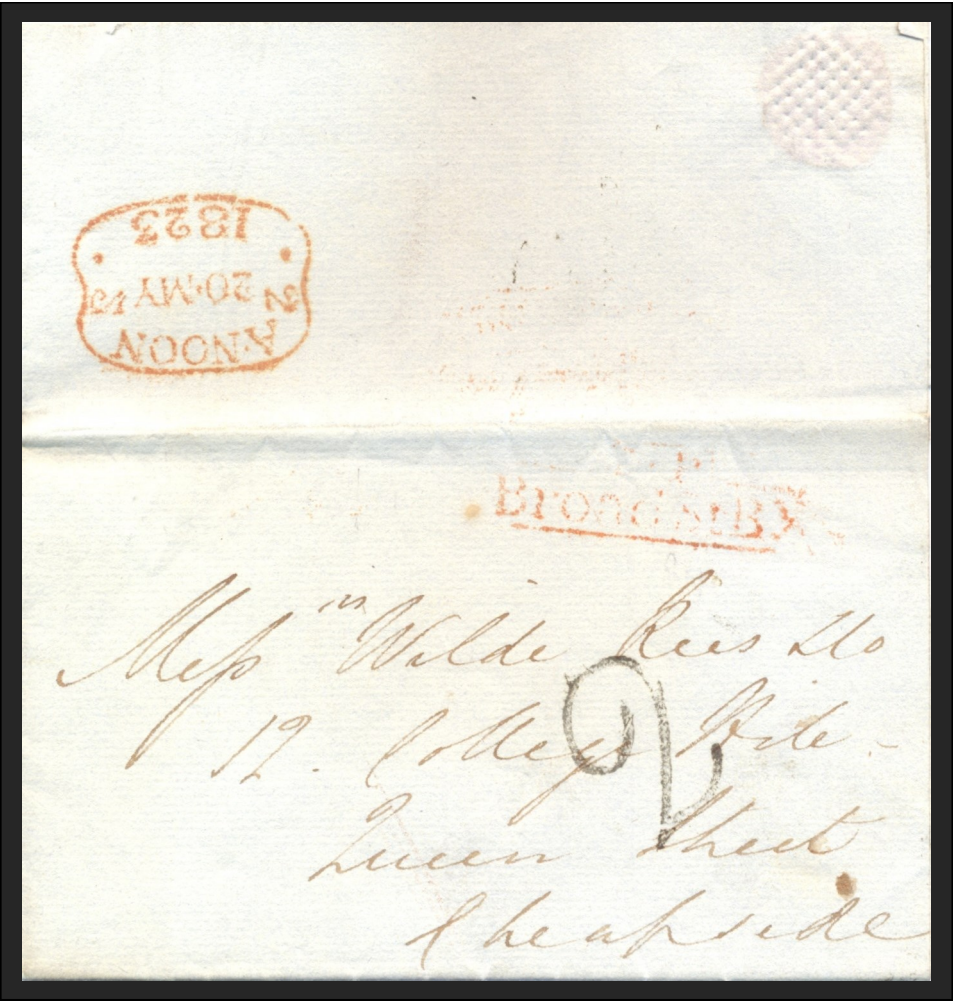 1823
2 20·MY 2
A·NOON
Broad St BX
Messrs Wilde Rees & Co
12. College Hill -
Queen Street
Cheapside
2